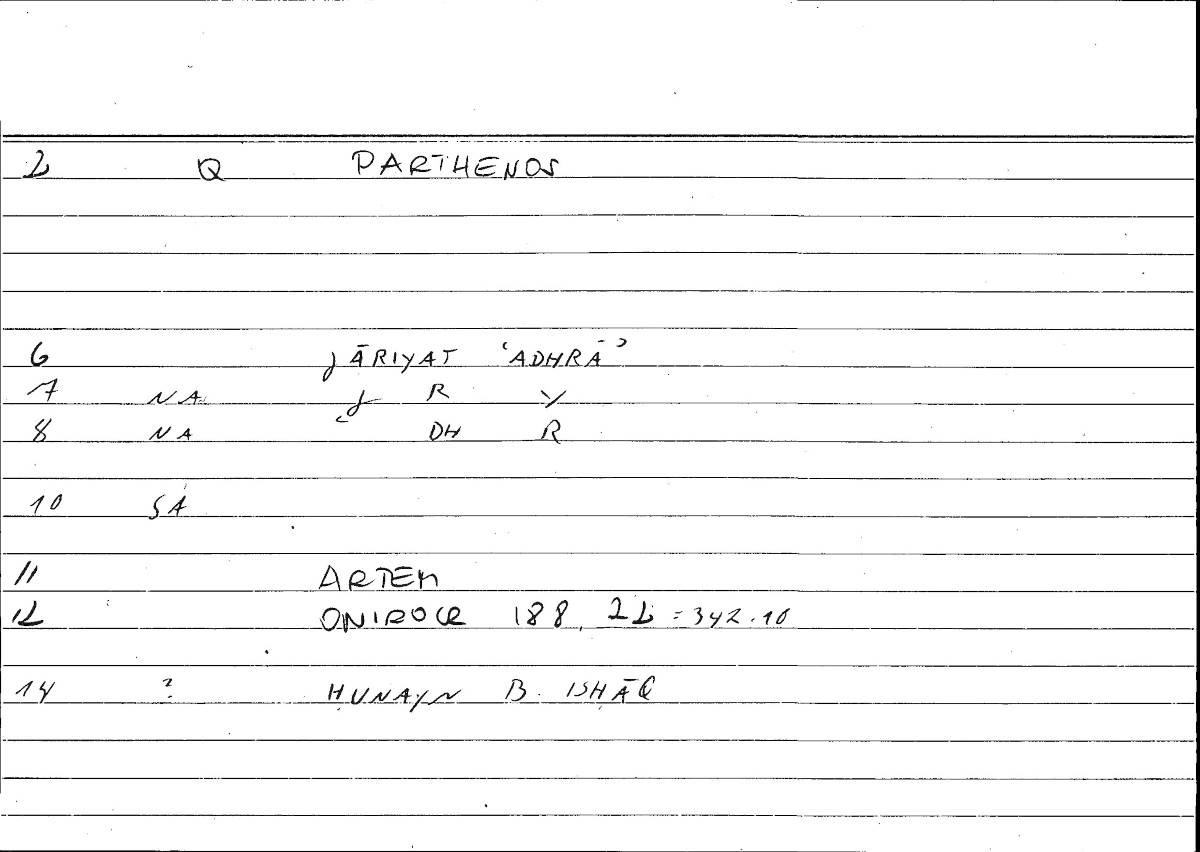 2 Q PARTHENOS
6 jĀRIYAT ʿADHRĀʾ
7 NA j R Y
8 NA ʿ DH R
10 SA
11 ARTEM
12 ONIROCR 188, 22 = 342.10
14 ? ḤUNAYN B. ISḤĀQ